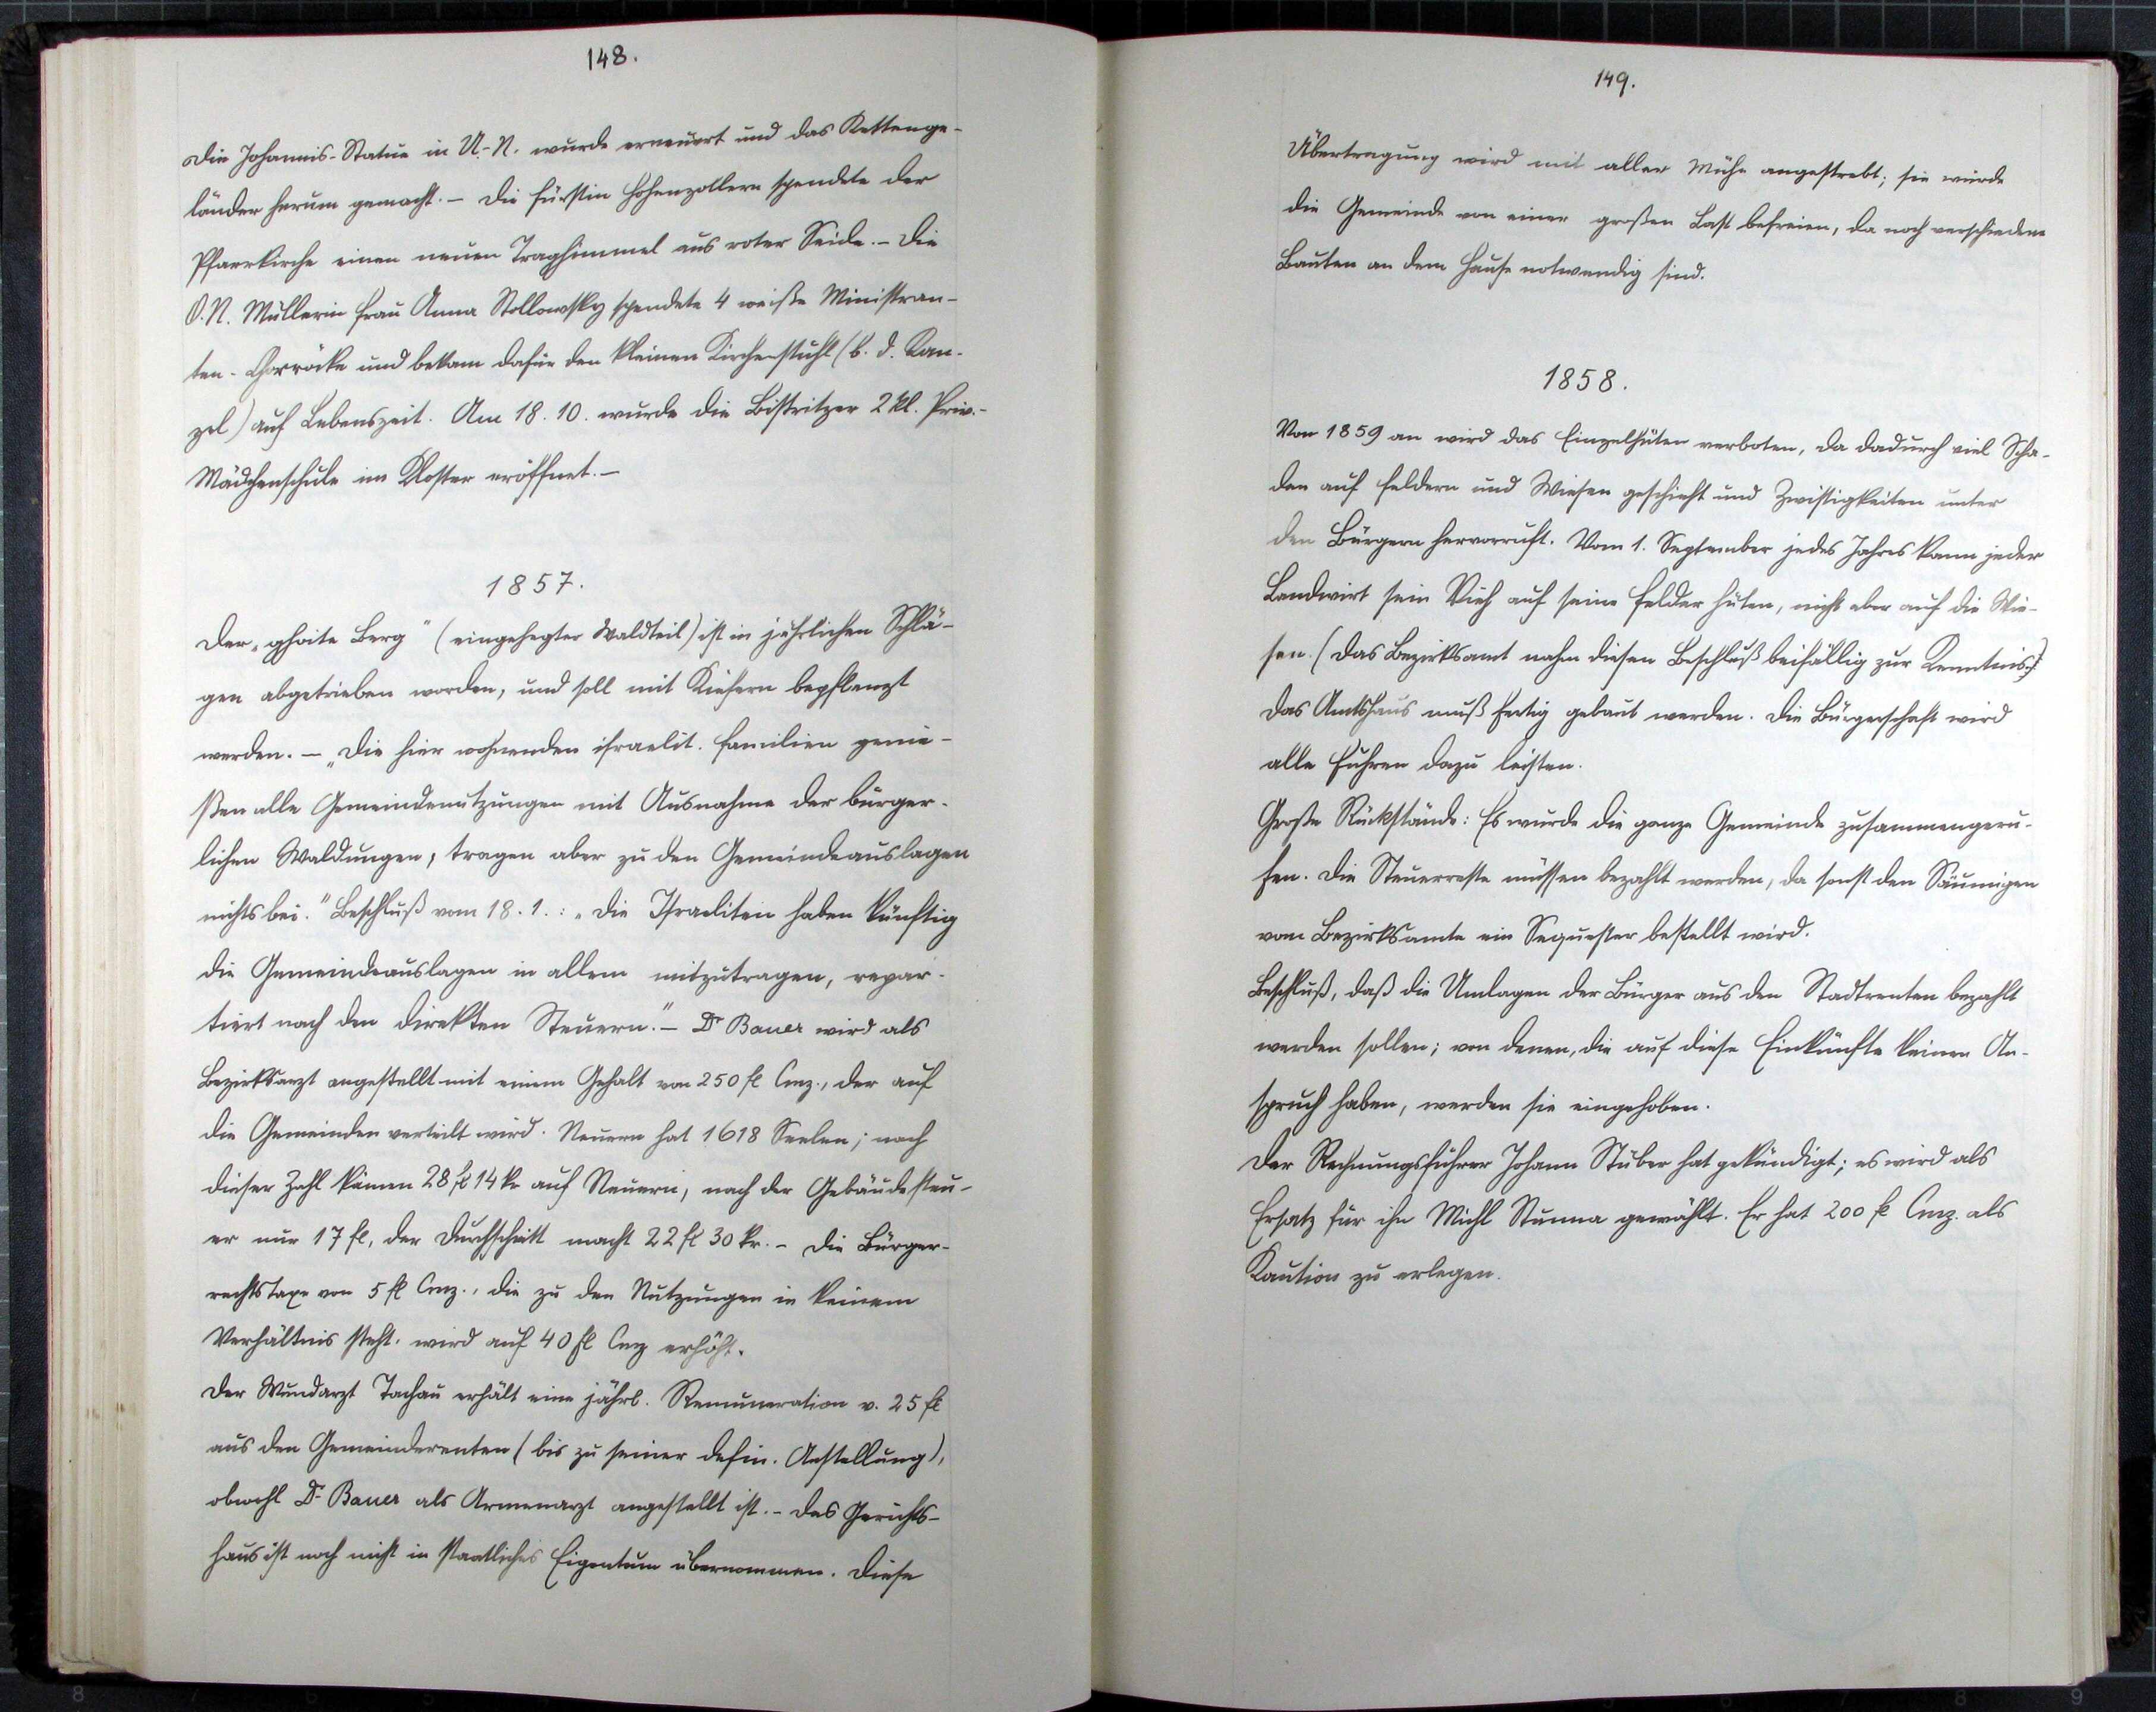 148.
Die Johannis-Statue in U.-N. wurde erneuert und das Kettenge-
länder herum gemacht. – Die Fürstin Hohenzollern spendete der
Pfarrkirche einen neuen Traghimmel aus roter Seide. – Die
O.N. Müllerin Frau Anna Stollowsky spendete 4 weiße Ministran-
ten-Chorröcke und bekam dafür den kleinen Kirchenstuhl (b. d. Kan-
zel) auf Lebenszeit. Am 18.10. wurde die Bistritzer 2 kl. Priv.-
Mädchenschule im Kloster eröffnet. –
1857.
Der „ghoite Berg" (eingehegter Waldteil) ist in jährlichen Schlä-
gen abgetrieben worden, und soll mit Kiefern bepflanzt
werden. – „Die hier wohnenden israelit. Familien genie-
ßen alle Gemeindenutzungen mit Ausnahme der bürger-
lichen Waldungen, tragen aber zu den Gemeindeauslagen
nichts bei." Beschluß vom 18.1.: „Die Israeliten haben künftig
die Gemeindeauslagen in allem mitzutragen, repar-
tiert nach den direkten Steuern." – Dr Bauer wird als
Bezirksarzt angestellt mit einem Gehalt von 250 fl Cmz., der auf
die Gemeinden verteilt wird. Neuern hat 1618 Seelen; nach
dieser Zahl kämen 28 fl 14 kr auf Neuern, nach der Gebäudesteu-
er nur 17 fl, der Durchschnitt macht 22 fl 30 kr. – Die Bürger-
rechtstaxe von 5 fl Cmz., die zu den Nutzungen in keinem
Verhältnis steht, wird auf 40 fl Cmz erhöht.
Der Wundarzt Tachau erhält eine jährl. Remuneration v. 25 fl
aus den Gemeinderenten (bis zu seiner defin. Anstellung),
obwohl Dr Bauer als Armenarzt angestellt ist. – Das Gerichts-
haus ist noch nicht in staatliches Eigentum übernommen. Diese
149.
Übertragung wird mit aller Mühe angestrebt; sie würde
die Gemeinde von einer großen Last befreien, da noch verschiedene
Bauten an dem Hause notwendig sind.
1858.
Von 1859 an wird das Einzelhüten verboten, da dadurch viel Scha-
den auf Feldern und Wiesen geschieht und Zwistigkeiten unter
den Bürgern hervorruft. Vom 1. September jedes Jahres kann jeder
Landwirt sein Vieh auf seine Felder hüten, nicht aber auf die Wie-
sen. (Das Bezirksamt nahm diesen Beschluß beifällig zur Kenntnis.)
Das Amtshaus muß fertig gebaut werden. Die Bürgerschaft wird
alle Fuhren dazu leisten.
Große Rückstände: Es wurde die ganze Gemeinde zusammengeru-
fen. Die Steuerreste müssen bezahlt werden, da sonst den Säumigen
vom Bezirksamte ein Sequester bestellt wird.
Beschluß, daß die Umlagen der Bürger aus den Stadtrenten bezahlt
werden sollen; von denen, die auf diese Einkünfte keinen An-
spruch haben, werden sie eingehoben.
Der Rechnungsführer Johann Stuber hat gekündigt; es wird als
Ersatz für ihn Michl Stunna gewählt. Er hat 200 fl Cmz. als
Kaution zu erlegen.